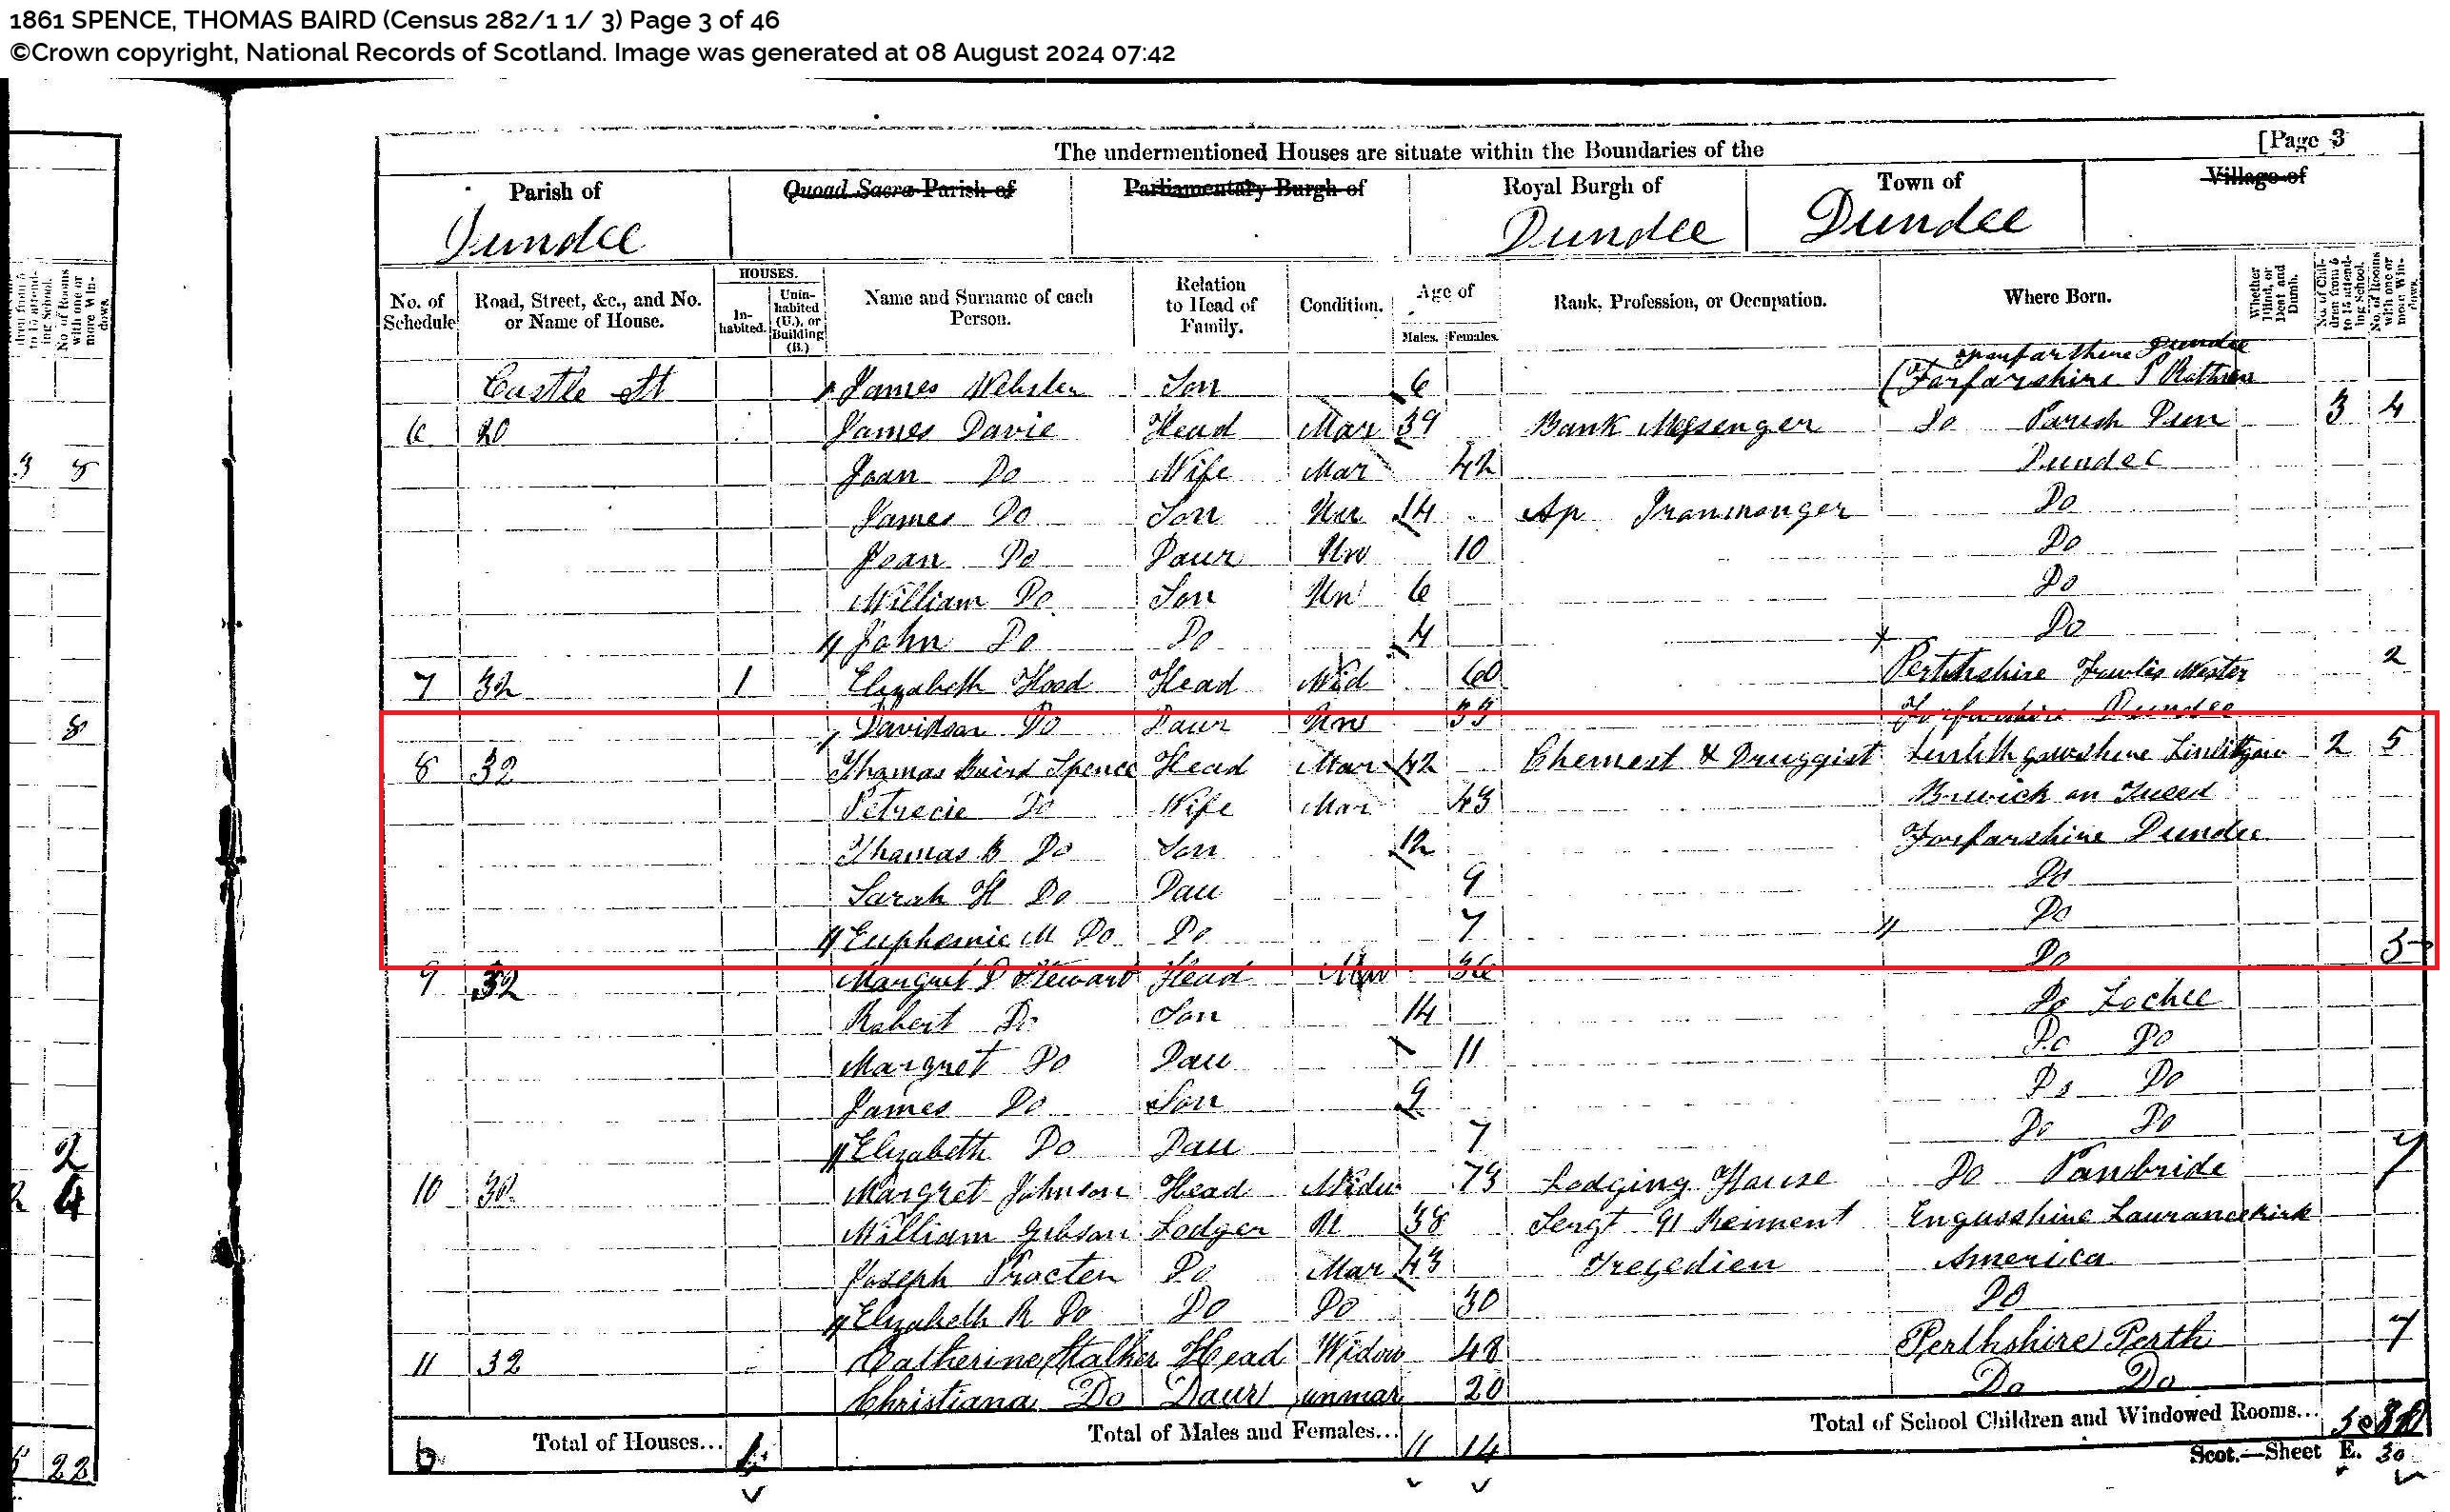 1861 SPENCE, THOMAS BAIRD (Census 282/1 1/ 3) Page 3 of 46
©Crown copyright, National Records of Scotland. Image was generated at 08 August 2024 07:42
[Page 3
The undermentioned Houses are situate within the Boundaries of the
Parish of Quoad Sacra Parish of Parliamentary Burgh of Royal Burgh of Town of Village of
Dundee Dundee Dundee
No. of Schedule Road, Street, &c., and No. or Name of House. HOUSES. In-habited. Unin-habited (U.), or Building (B.) Name and Surname of each Person. Relation to Head of Family. Condition. Age of Males. Females. Rank, Profession, or Occupation. Where Born. Whether Blind, or Deaf and Dumb. No. of Chil-dren from 5 to 15 attend-ing School. No. of Rooms with one or more Win-dows.
Dundee
Castle St James Webster Son 6 Forfarshire
6 20 James Davie Head Mar 39 Bank Messenger Do Parish Dun 3 4
Jean Do Wife Mar 42 Dundee
James Do Son Un 14 Ap Ironmonger Do
Jean Do Daur Un 10 Do
William Do Son Un 6 Do
John Do Do 4 Do
7 32 1 Elizabeth Hood Head Wid 60 Perthshire Fowlis Wester 2
Davidson Do Daur Un 33 Forfarshire Dundee
8 32 Thomas Baird Spence Head Mar 42 Chemest & Druggist Linlithgowshire Linlithgow 2 5
Petrecie Do Wife Mar 43 Brwick on Tweed
Thomas B Do Son 12 Forfarshire Dundee
Sarah H Do Dau 9 Do
Euphemie M Do Do 7 Do
9 32 Margret D Steward Head 36 Do 5
Robert Do Son 14 Do Lochee
Margret Do Dau 11 Do Do
James Do Son 9 Do Do
Elizabeth Do Dau 7 Do Do
10 30 Margret Johnson Head Widw 73 Lodging House Do Panbride 7
William Gibson Lodger U 38 Sergt 91 Reiment Engusshire Laurancekirk
Joseph Procter Do Mar 43 Tregedien America
Elizabeth R Do Do Do 30 Do
11 32 Catherine Stalker Head Widow 48 Perthshire Perth 7
Christiana Do Daur unmar 20 Do Do
6 Total of Houses... Total of Males and Females... 11 14 Total of School Children and Windowed Rooms...
Scot.—Sheet E. 30
22